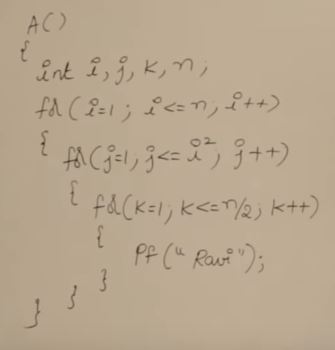 A()
{
int i, j, k, n;
for (i=1; i<=n; i++)
{ for (j=1; j<= i²; j++)
{ for (k=1; k<=n/2; k++)
{
Pf ("Ravi");
}
}
}